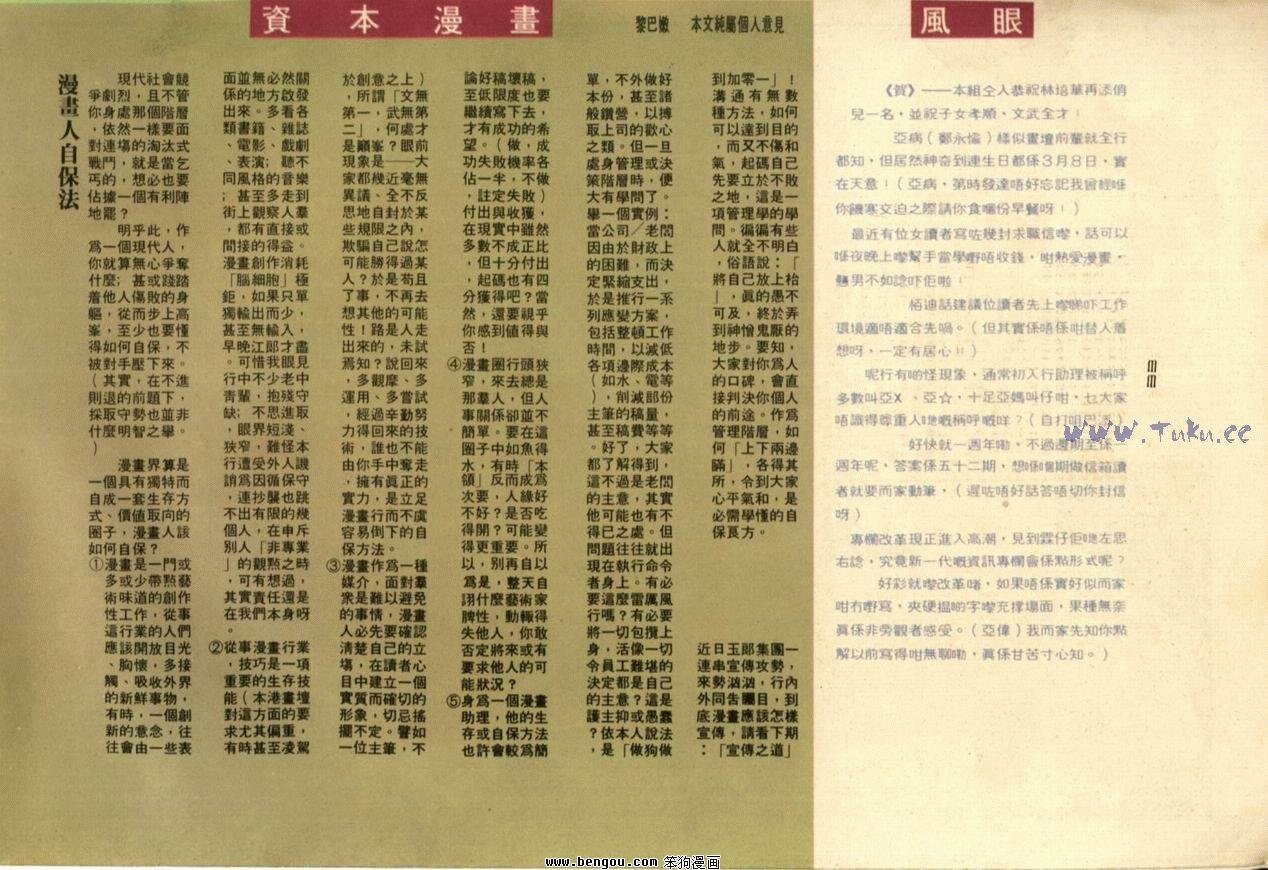 資本漫畫
黎巴嫩 本文純屬個人意見
漫畫人自保法
現代社會競
爭劇烈，且不管
你身處那個階層
，依然一樣要面
對連場的淘汰式
戰鬥，就是當乞
丐的，想必也要
佔據一個有利陣
地罷？
明乎此，作
爲一個現代人，
你就算無心爭奪
什麼；甚或踐踏
着他人傷敗的身
軀，從而步上高
峯，至少也要懂
得如何自保，不
被對手壓下來。
（其實，在不進
則退的前題下，
採取守勢也並非
什麼明智之舉。
）
漫畫界算是
一個具有獨特而
自成一套生存方
式、價值取向的
圈子，漫畫人該
如何自保？
①漫畫是一門或
多或少帶點藝
術味道的創作
性工作，從事
這行業的人們
應該開放目光
、胸懷，多接
觸、吸收外界
的新鮮事物，
有時，一個創
新的意念，往
往會由一些表
面並無必然關
係的地方啟發
出來。多看各
類書籍、雜誌
、電影、戲劇
、表演；聽不
同風格的音樂
；甚至多走到
街上觀察人羣
，都有直接或
間接的得益。
漫畫創作消耗
「腦細胞」極
鉅，如果只單
獨輸出而少，
甚至無輸入，
早晚江郎才盡
。可惜我眼見
行中不少老中
青輩，抱殘守
缺；不思進取
，眼界短淺、
狹窄，難怪本
行遭受外人譏
誚爲因循保守
，連抄襲也跳
不出有限的幾
個人，在申斥
別人「非專業
」的觀點之時
，可有想過，
其實責任還是
在我們本身呀
。
②從事漫畫行業
，技巧是一項
重要的生存技
能（本港畫壇
對這方面的要
求尤其偏重，
有時甚至凌駕
於創意之上）
，所謂「文無
第一，武無第
二」，何處才
是巔峯？眼前
現象是——大
家都幾近毫無
異議、全不反
思地自封於某
些規限之內，
欺騙自己說怎
可能勝得過某
人？於是苟且
了事，不再去
想其他的可能
性！路是人走
出來的，未試
焉知？說回來
，多觀摩、多
運用、多嘗試
，經過辛勤努
力得回來的技
術，誰也不能
由你手中奪走
，擁有眞正的
實力，是立足
漫畫行而不虞
容易倒下的自
保方法。
③漫畫作爲一種
媒介，面對羣
衆是難以避免
的事情，漫畫
人必先要確認
清楚自己的立
場，在讀者心
目中建立一個
實質而確切的
形象，切忌搖
擺不定。譬如
一位主筆，不
論好稿壞稿，
至低限度也要
繼續寫下去，
才有成功的希
望。（做，成
功失敗機率各
佔一半，不做
，註定失敗）
付出與收獲，
在現實中雖然
多數不成正比
，但十分付出
，起碼也有四
分獲得吧？當
然，還要視乎
你感到值得與
否！
④漫畫圈行頭狹
窄，來去總是
那羣人，但人
事關係卻並不
簡單。要在這
圈子中如魚得
水，有時「本
領」反而成爲
次要，人緣好
不好？是否吃
得開？可能變
得更重要。所
以，別再自以
爲是，整天自
詡什麼藝術家
脾性，動輒得
失他人，你敢
否定將來或有
要求他人的可
能狀況？
⑤身爲一個漫畫
助理，他的生
存或自保方法
也許會較爲簡
單，不外做好
本份，甚至諸
般鑽營，以搏
取上司的歡心
之類。但一旦
處身管理或決
策階層時，便
大有學問了。
舉一個實例：
當公司／老闆
因由於財政上
的困難，而決
定緊縮支出，
於是推行一系
列應變方案，
包括整頓工作
時間，以減低
各項邊際成本
（如水、電等
），削減部份
主筆的稿量，
甚至稿費等等
。好了，大家
都了解得到，
這不過是老闆
的主意，其實
他可能也有不
得已之處。但
問題往往就出
現在執行命令
者身上。有必
要這麼雷厲風
行嗎？有必要
將一切包攬上
身，活像一切
令員工難堪的
決定都是自己
的主意？這是
護主抑或愚蠢
？依本人說法
，是「做狗做
到加零一」！
溝通有無數
種方法，如何
可以達到目的
，而又不傷和
氣，起碼自己
先要立於不敗
之地，這是一
項管理學的學
問。徧徧有些
人就全不明白
，俗語說：「
將自己放上枱
」，眞的愚不
可及，終於弄
到神憎鬼厭的
地步。要知，
大家對你爲人
的口碑，會直
接判決你個人
的前途。作爲
管理階層，如
何「上下兩邊
瞞」，各得其
所，令到大家
心平氣和，是
必需學懂的自
保良方。
近日玉郎集團一
連串宣傳攻勢，
來勢汹汹，行內
外同告矚目，到
底漫畫應該怎樣
宣傳，請看下期
：「宣傳之道」
風眼
《賀》——本組仝人恭祝林培華再添俏
兒一名，並祝子女孝順，文武全才！
亞病（鄭永愉）樣似畫壇前輩就全行
都知，但居然神奇到連生日都係３月８日，實
在天意！（亞病，第時發達唔好忘記我曾經喺
你饑寒交迫之際請你食嗰份早餐呀！）
最近有位女讀者寫咗幾封求職信嚟，話可以
喺夜晚上嚟幫手當學嘢唔收錢，咁熱愛漫畫，
醜男不如諗吓佢啦！
栢迪話建議位讀者先上嚟睇吓工作
環境適唔適合先喎。（但其實係唔係咁替人着
想呀，一定有居心！！）
呢行有啲怪現象，通常初入行助理被稱呼
多數叫亞Ｘ、亞☆，十足亞媽叫仔咁，乜大家
唔識得尊重人哋嘅稱呼嘅咩？（自打咀巴添）
好快就一週年嘞，不過週期至係一
週年呢，答案係五十二期，想係嗰期做信箱讀
者就要而家動筆，（遲咗唔好話答唔切你封信
呀）
專欄改革現正進入高潮，見到霖仔佢哋左思
右諗，究竟新一代嘅資訊專欄會係點形式呢？
好彩就嚟改革啫，如果唔係實好似而家
咁冇嘢寫，夾硬揾啲字嚟充撐場面，果種無奈
眞係非旁觀者感受。（亞偉）我而家先知你點
解以前寫得咁無聊嘞，眞係甘苦寸心知。）
www.Tuku.cc
www.bengou.com 笨狗漫画